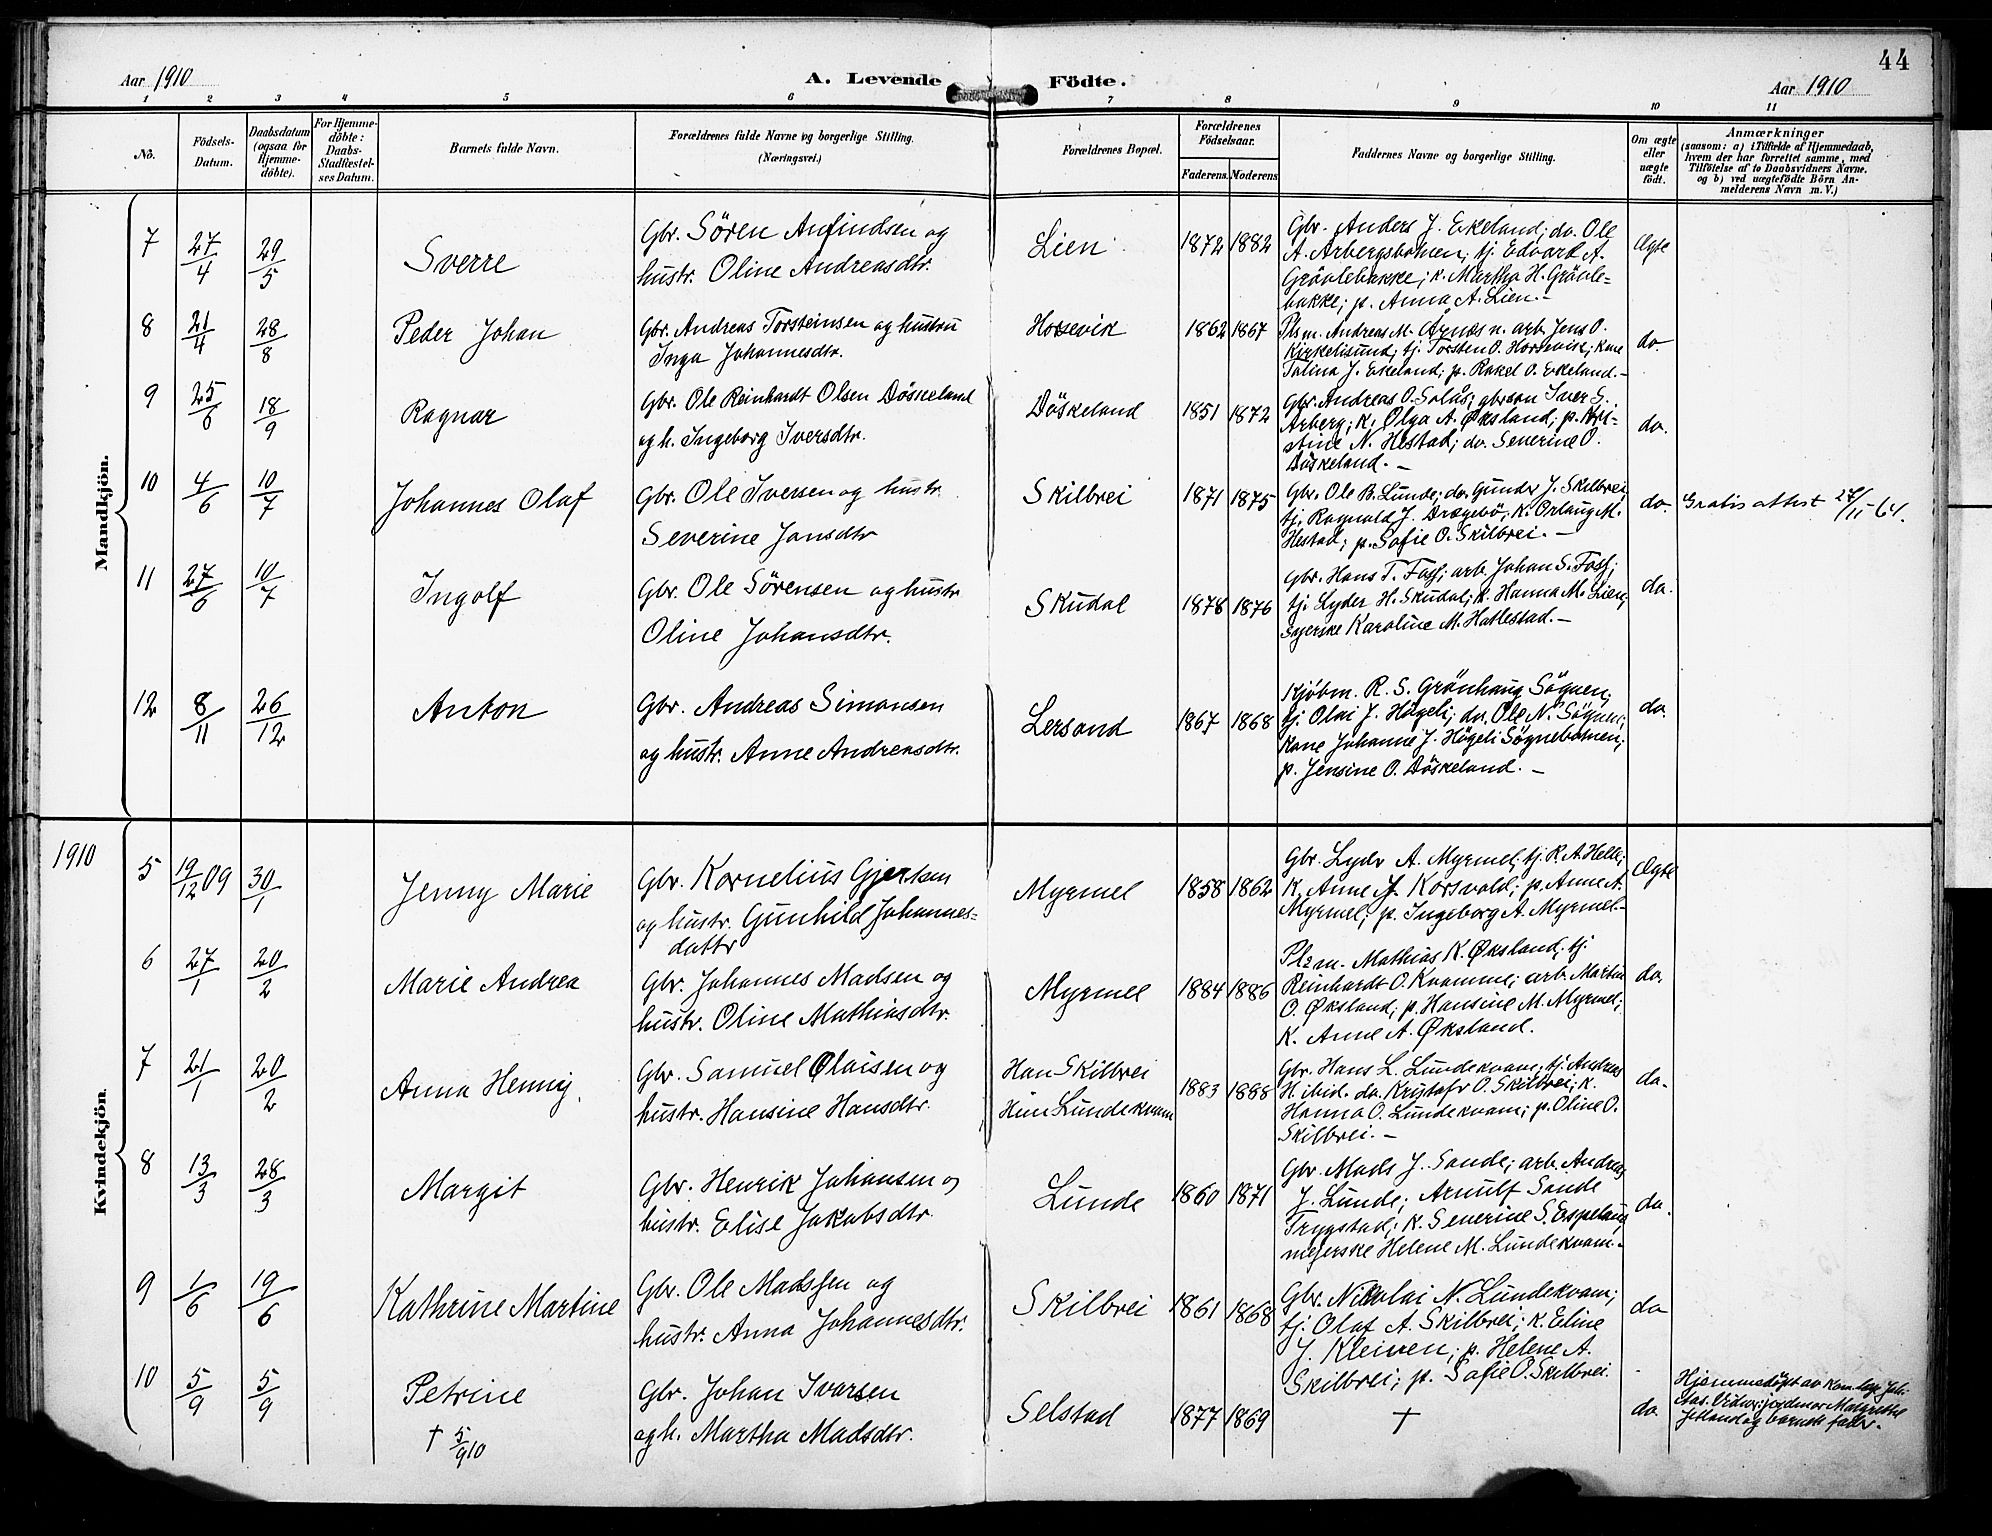 44
Aar 1910
A. Levende Födte.
Aar 1910
1 2 3 4 5 6 7 8 9 10 11
No.
Födsels-
Datum.
Daabsdatum
(ogsaa for
Hjemme-
döbte).
For Hjemme-
döbte:
Daabs-
Stadfæstel-
ses Datum.
Barnets fulde Navn.
Forældrenes fulde Navne og borgerlige Stilling.
(Næringsvei.)
Forældrenes Bopæl.
Forældrenes
Födselsaar.
Faderens. Moderens
Faddernes Navne og borgerlige Stilling.
Om ægte
eller
uægte
født.
Anmærkninger
(saasom: a) i Tilfælde af Hjemmedaab,
hvem der har forrettet samme, med
Tilføtelse af to Daabsvidners Navne,
og b) ved uægtefödte Börn An-
melderens Navn m. V.)
Mandkjön.
7 27/4 29/5 Sverre
Gbr. Sören Anfindsen og
hustr. Oline Andreasdtr.
Lien 1872 1882
Gbr. Anders J. Ekeland; do. Ole
A. Arbergsbotnen; tj. Edvard A.
Grövlebakke; k. Martha H. Grövle-
bakke; p. Anna A. Lien.-
Ægte
8 21/4 28/8 Peder Johan
Gbr. Andreas Torsteinsen og hustru
Inga Johannesdtr.
Horsevik 1862 1867
Andreas M. Årnes n. arb. Jens O.
Kirkelisund; tj. Torsten O. Horsevik; kone
Talina J. Ekeland; p. Rakel O. Ekeland.-
do.
9 25/6 18/9 Ragnar
Gbr. Ole Reinhardt Olsen Döskeland
og h. Ingeborg Iversdtr.
Döskeland 1851 1872
Gbr. Andreas O. Solås; gbrsøn Iver S.
Arberg; K. Olga A. Øksland; p. Kri-
stine N. Hestad; do. Severine O.
Döskeland.-
do.
10 4/6 10/7 Johannes Olaf
Gbr. Ole Iversen og hustr.
Severine Jonsdtr
Skilbrei 1871 1875
Gbr. Ole B. Lunde; do. Gunder J. Skilbrei,
tj. Ragnald J. Drægebö; K. Orlaug M.
Hestad; p. Sofie O. Skilbrei.-
do. Gratis attest 27/11-64.
11 27/6 10/7 Ingolf
Gbr. Ole Sörensen og hustr.
Oline Johansdtr.
Skudal 1878 1876
Gbr. Hans T. Foss; arb. Johan S. Foss;
tj. Lyder H. Skudal; k. Hanna M. Lien;
syerske Karoline M. Hatlestad.-
do.
12 8/11 26/12 Anton
Gbr. Andreas Simonsen
og hustr. Anne Andreasdtr.
Lersand 1867 1868
Kjøbm. R. S. Grönhaug Sögnen;
tj. Olai J. Högeli; do. Ole N. Sögnen;
Kone Johanne J. Högeli Sögnebotnen;
p. Jensine O. Döskeland.-
do.
1910
Kvindekjön.
5 19/12 09 30/1 Jenny Marie
Gbr. Kornelius Gjertsen
og hustr. Gunhild Johannes-
dattr
Myrmel 1858 1862
Gbr. Lydr A. Myrmel; tj. R. A. Helle;
K. Anne J. Korsvold; p. Anne A.
Myrmel; p. Ingeborg A. Myrmel-
Ægte
6 27/1 20/2 Marie Andrea
Gbr. Johannes Madsen og
hustr. Oline Mathiasdtr.
Myrmel 1884 1886
Plzm. Mathias K. Øksland; tj.
Reinhardt O. Kvamme; arb. Martin
O. Øksland; p. Hansine M. Myrmel;
K. Anne A. Øksland.
do.
7 21/1 20/2 Anna Henny.
Gbr. Samuel Olaisen og
hustr. Hansine Hansdtr.
Han Skilbrei
Hun Lundekvam
1883 1888
Gbr. Hans L. Lundekvam; tj. Andreas
H. ibid. do. Kristofer O. Skilbrei; k.
Hanna O. Lundekvam; p. Oline O.
Skilbrei.-
do.
8 13/3 28/3 Margit
Gbr. Henrik Johansen og
hustr. Elise Jakobsdtr.
Lunde 1860 1871
Gbr. Mads J. Sande; arb. Andreas
J. Lunde; Arnulf Sande
Trygstad; K. Severine S. Espeland
mejerske Helene M. Lundekvam.
do.
9 1/6 19/6 Kathrine Martine
Gbr. Ole Madssen og
hustr. Anna Johannesdtr.
Skilbrei 1861 1868
Gbr. Nikolai N. Lundekvam;
tj. Olaf A. Skilbrei; K. Eline
J. Kleiven; p. Helene A.
Skilbrei; p. Sofie O. Skilbrei.
do
10 5/9 5/9 Petrine
† 5/9 10
Gbr. Johan Ivarsen
og h. Martha Madsdtr.
Selstad 1877 1869
†
do.
Hjemmedöpt av
Vidner: jordmor Margrethe
Jetland og barnets fader.